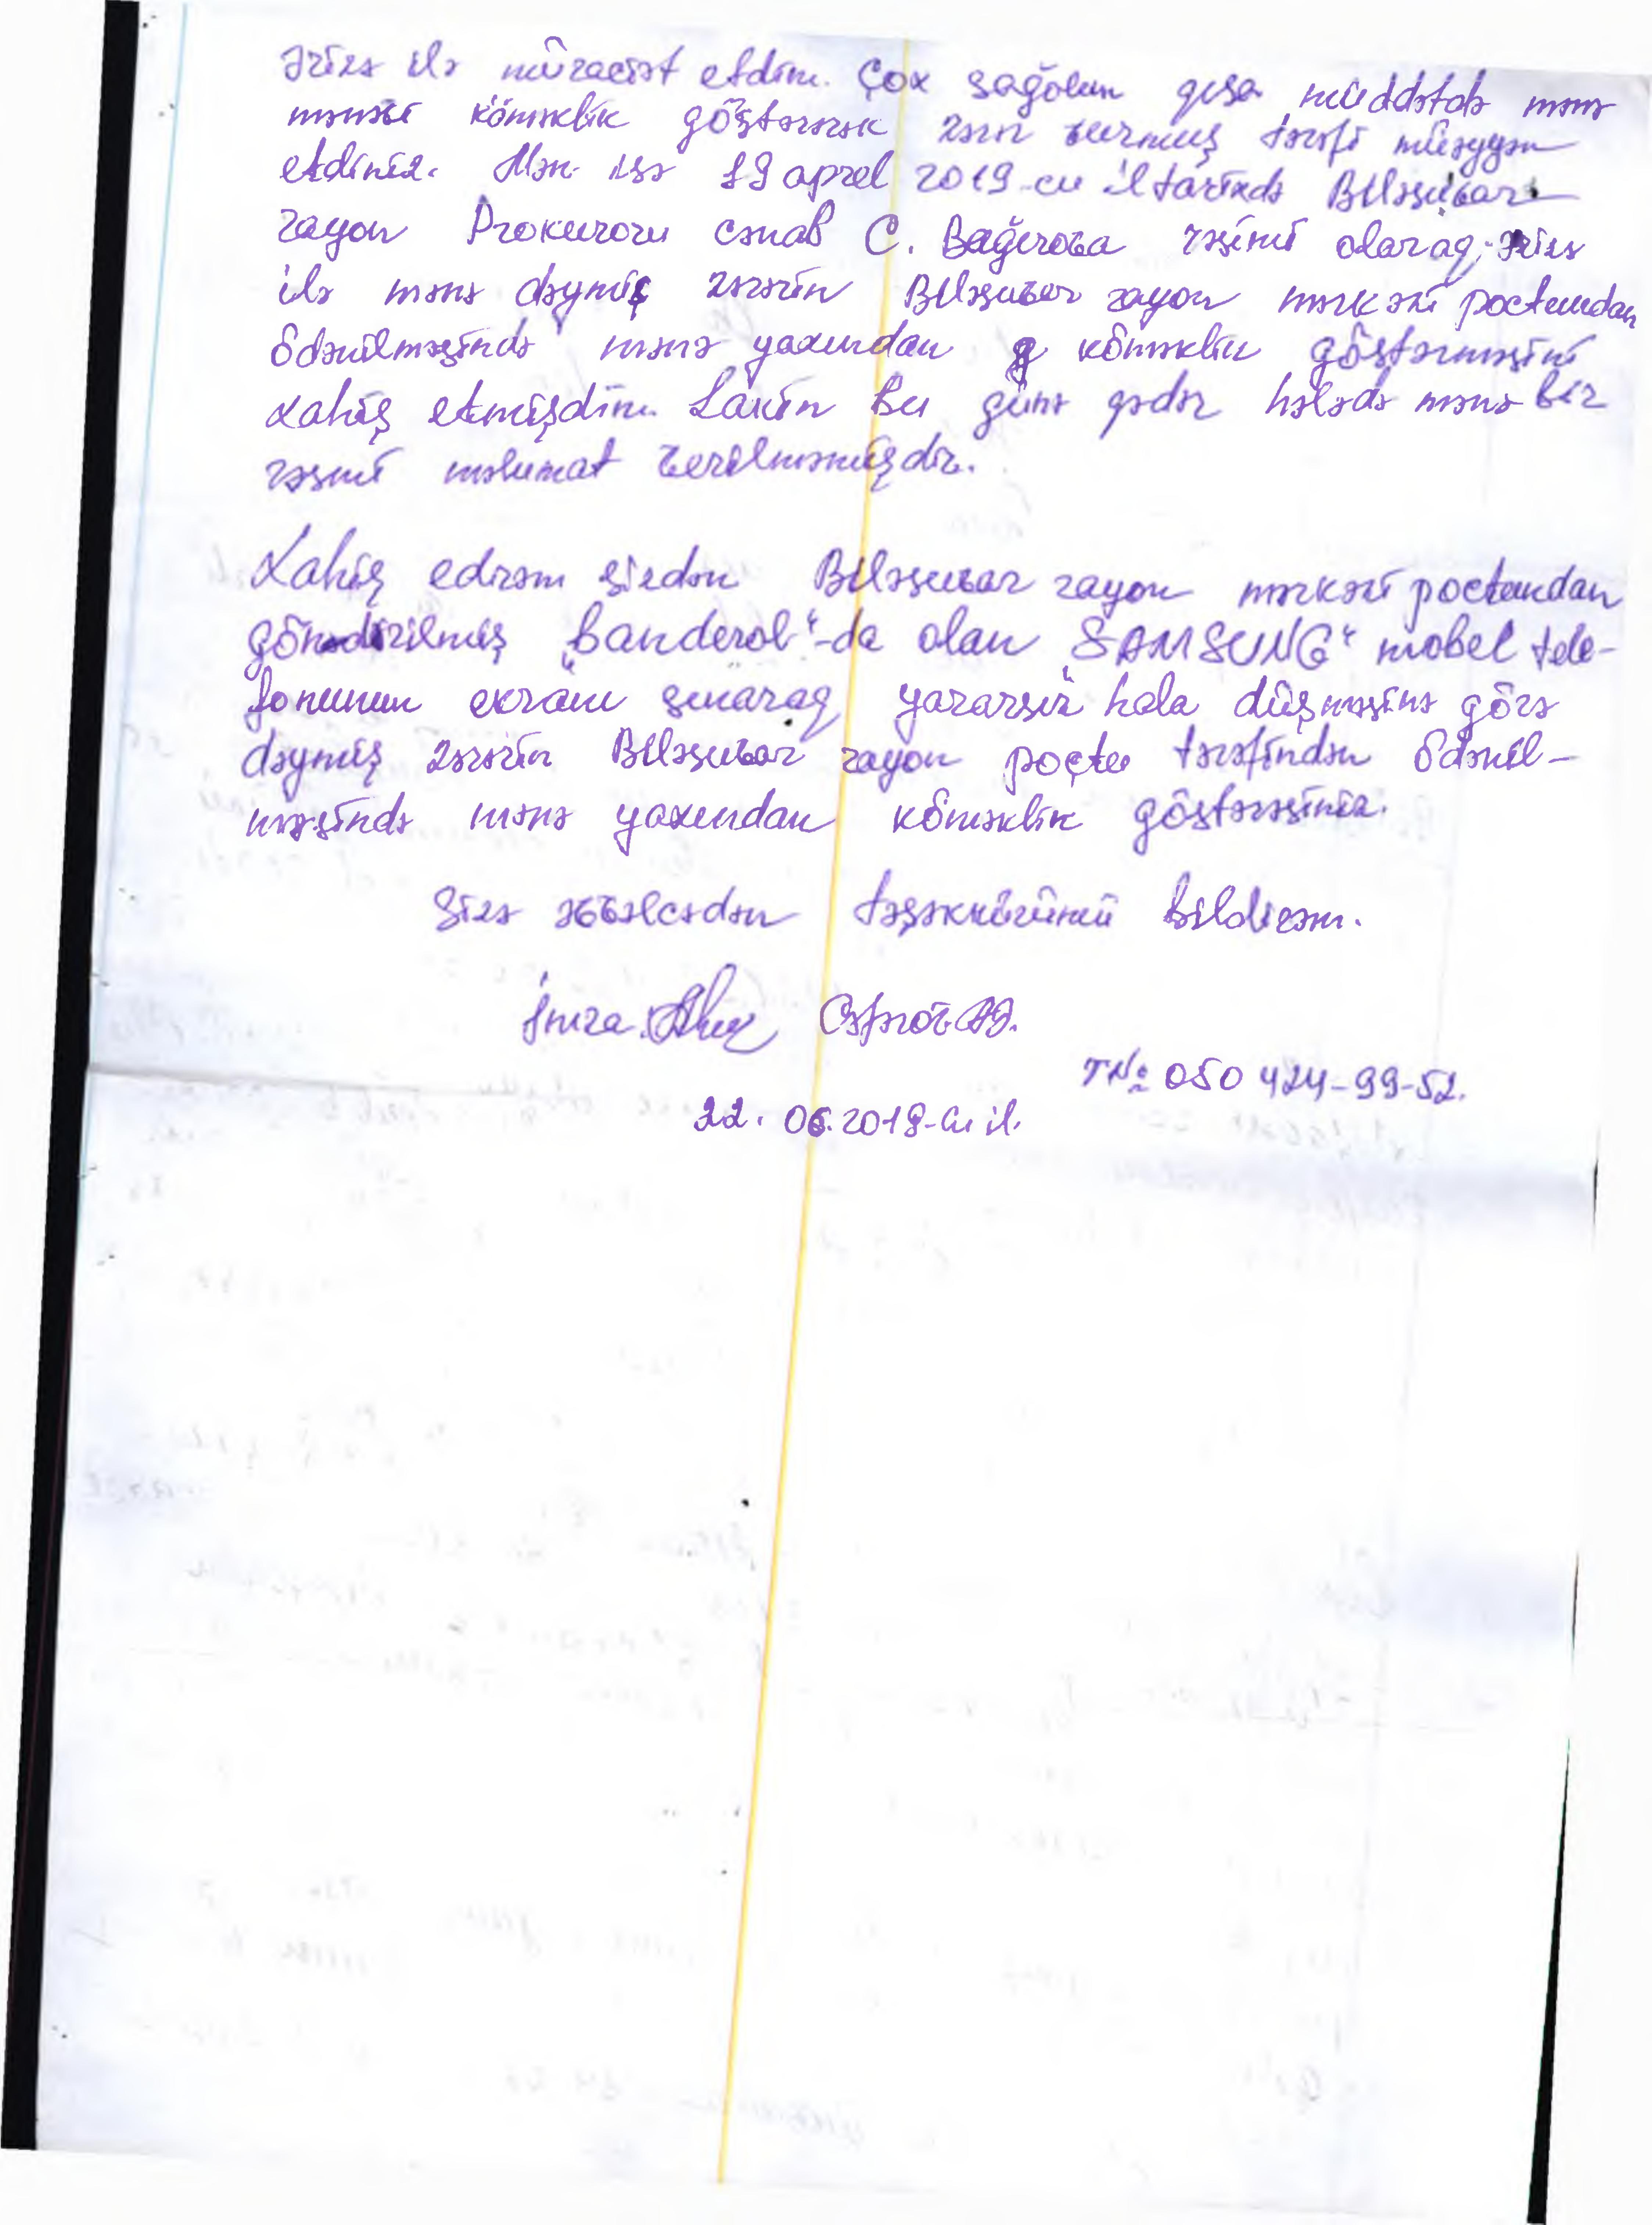 ərizə ilə müraciət etdim. Çox sağolun qısa müddətdə mənə
mənəvi köməklik göstərərək zərər vurmuş tərəfi müəyyən
etdiniz. Mən isə 19 aprel 2019-cu il tarixdə Biləsuvar
rayon Prokuroru cənab C. Bağırova rəsmi olaraq ərizə
ilə mənə dəymiş zərərin Biləsuvar rayon mərkəzi poctundan
ödənilməsində mənə yaxından köməklik göstərməsini
xahiş etmişdim. Lakin bu günə qədər hələdə mənə bir
rəsmi məlumat verilməmişdir.
Xahiş edirəm sizdən Biləsuvar rayon mərkəzi poctundan
göndərilmiş „banderol“-da olan „SAMSUNG“ mobel tele-
fonunun ekranı sınaraq yararsız hala düşməsinə görə
dəymiş zərərin Biləsuvar rayon poçtu tərəfindən ödənil-
məsində mənə yaxından köməklik göstərəsiniz.
Sizə əvvəlcədən təşəkkürümü bildirəm.
İmza. Cəfərov Ə.
T№ 050 424-99-52.
22. 06. 2019-cu il.